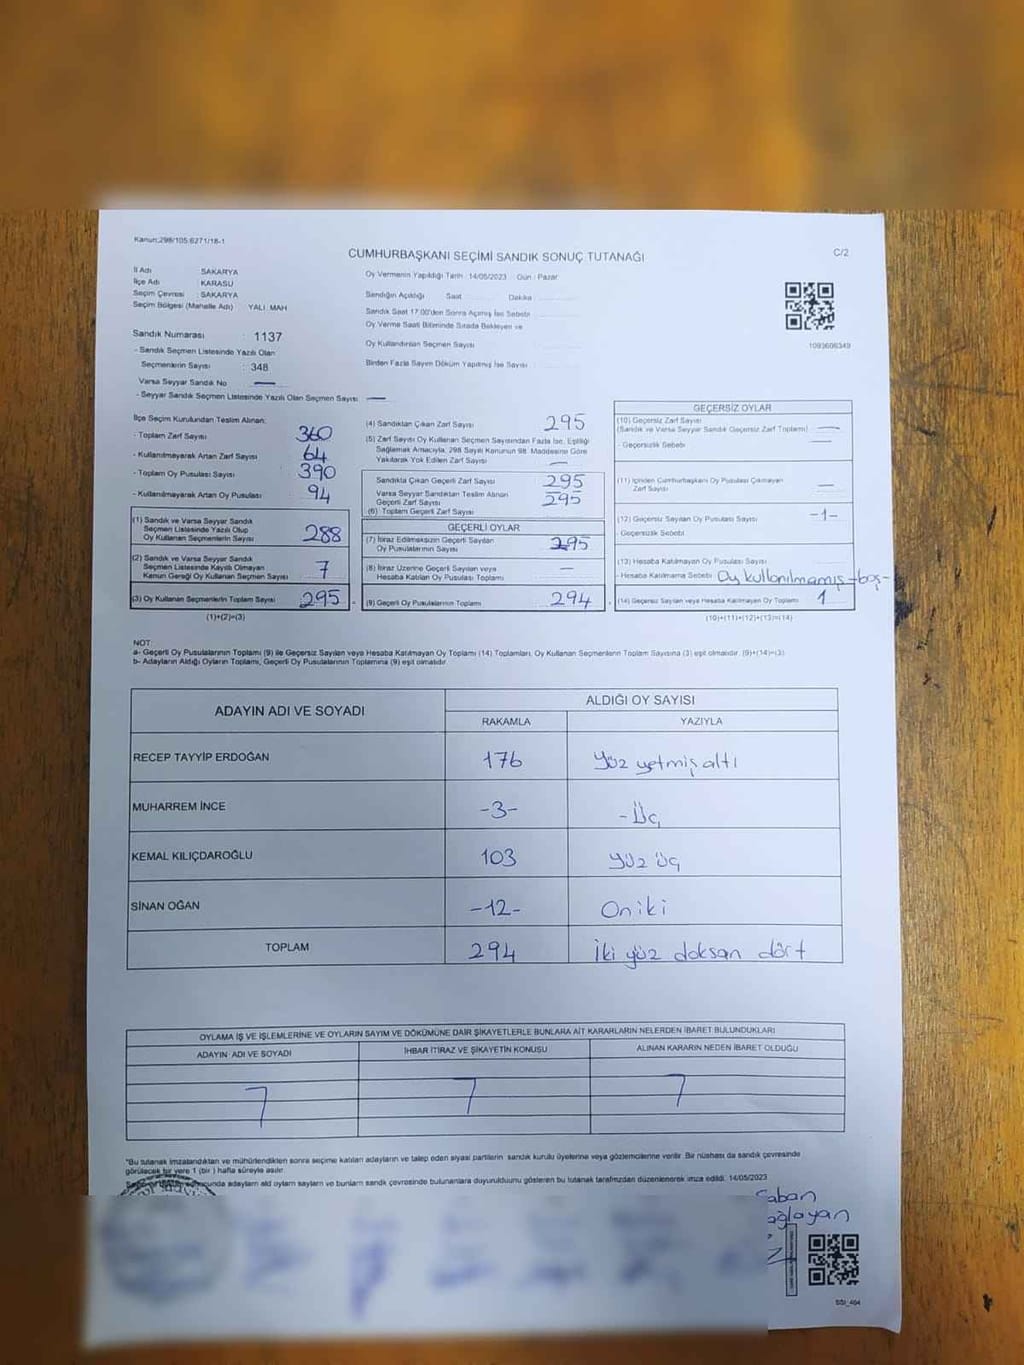 Kanun;298/105.6271/18-1
CUMHURBAŞKANI SEÇİMİ SANDIK SONUÇ TUTANAĞI
C/2
İl Adı : SAKARYA
İlçe Adı : KARASU
Seçim Çevresi : SAKARYA
Seçim Bölgesi (Mahalle Adı) YALI MAH
Sandık Numarası : 1137
- Sandık Seçmen Listesinde Yazılı Olan
Seçmenlerin Sayısı : 348
Varsa Seyyar Sandık No —
- Seyyar Sandık Seçmen Listesinde Yazılı Olan Seçmen Sayısı —
Oy Vermenin Yapıldığı Tarih : 14/05/2023 Gün : Pazar
Sandığın Açıldığı Saat Dakika
Sandık Saat 17:00'den Sonra Açılmış İse Sebebi
Oy Verme Saati Bitiminde Sırada Bekleyen ve
Oy Kullandırılan Seçmen Sayısı
Birden Fazla Sayım Döküm Yapılmış İse Sayısı
1093606349
İlçe Seçim Kurulundan Teslim Alınan:
- Toplam Zarf Sayısı 360
- Kullanılmayarak Artan Zarf Sayısı 64
- Toplam Oy Pusulası Sayısı 390
- Kullanılmayarak Artan Oy Pusulası 94
(1) Sandık ve Varsa Seyyar Sandık
Seçmen Listesinde Yazılı Olup
Oy Kullanan Seçmenlerin Sayısı 288
(2) Sandık ve Varsa Seyyar Sandık
Seçmen Listesinde Kayıtlı Olmayan
Kanun Gereği Oy Kullanan Seçmen Sayısı 7
(3) Oy Kullanan Seçmenlerin Toplam Sayısı 295
(1)+(2)=(3)
(4) Sandıktan Çıkan Zarf Sayısı 295
(5) Zarf Sayısı Oy Kullanan Seçmen Sayısından Fazla İse, Eşitliği
Sağlamak Amacıyla, 298 Sayılı Kanunun 98. Maddesine Göre
Yakılarak Yok Edilen Zarf Sayısı —
Sandıkta Çıkan Geçerli Zarf Sayısı 295
Varsa Seyyar Sandıktan Teslim Alınan
Geçerli Zarf Sayısı —
(6) Toplam Geçerli Zarf Sayısı 295
GEÇERLİ OYLAR
(7) İtiraz Edilmeksizin Geçerli Sayılan
Oy Pusulalarının Sayısı 295
(8) İtiraz Üzerine Geçerli Sayılan veya
Hesaba Katılan Oy Pusulası Toplamı —
(9) Geçerli Oy Pusulalarının Toplamı 294
GEÇERSİZ OYLAR
(10) Geçersiz Zarf Sayısı
(Sandık ve Varsa Seyyar Sandık Geçersiz Zarf Toplamı) —
- Geçersizlik Sebebi —
(11) İçinden Cumhurbaşkanı Oy Pusulası Çıkmayan
Zarf Sayısı —
(12) Geçersiz Sayılan Oy Pusulası Sayısı -1-
- Geçersizlik Sebebi
(13) Hesaba Katılmayan Oy Pusulası Sayısı
- Hesaba Katılmama Sebebi Oy kullanılmamış -boş-
(14) Geçersiz Sayılan veya Hesaba Katılmayan Oy Toplamı 1
(10)+(11)+(12)+(13)=(14)
NOT:
a- Geçerli Oy Pusulalarının Toplamı (9) ile Geçersiz Sayılan veya Hesaba Katılmayan Oy Toplamı (14) Toplamları, Oy Kullanan Seçmenlerin Toplam Sayısına (3) eşit olmalıdır. (9)+(14)=(3)
b- Adayların Aldığı Oyların Toplamı, Geçerli Oy Pusulalarının Toplamına (9) eşit olmalıdır.
ADAYIN ADI VE SOYADI
ALDIĞI OY SAYISI
RAKAMLA YAZIYLA
RECEP TAYYİP ERDOĞAN 176 Yüz yetmiş altı
MUHARREM İNCE -3- -Üç
KEMAL KILIÇDAROĞLU 103 yüz üç
SİNAN OĞAN -12- On iki
TOPLAM 294 İki yüz doksan dört
OYLAMA İŞ VE İŞLEMLERİNE VE OYLARIN SAYIM VE DÖKÜMÜNE DAİR ŞİKAYETLERLE BUNLARA AİT KARARLARIN NELERDEN İBARET BULUNDUKLARI
ADAYIN ADI VE SOYADI İHBAR İTİRAZ VE ŞİKAYETİN KONUSU ALINAN KARARIN NEDEN İBARET OLDUĞU
"Bu tutanak imzalandıktan ve mühürlendikten sonra seçime katılan adayların ve talep eden siyasi partilerin sandık kurulu üyelerine veya gözlemcilerine verilir. Bir nüshası da sandık çevresinde
görülecek bir yere 1 (bir) hafta süreyle asılır.
adayların aldığı oyların sayılarını ve bunların sandık çevresinde bulunanlara duyurulduğunu gösteren bu tutanak tarafımızdan düzenlenerek imza edildi. 14/05/2023
Şaban
ağlayan
SSI_464